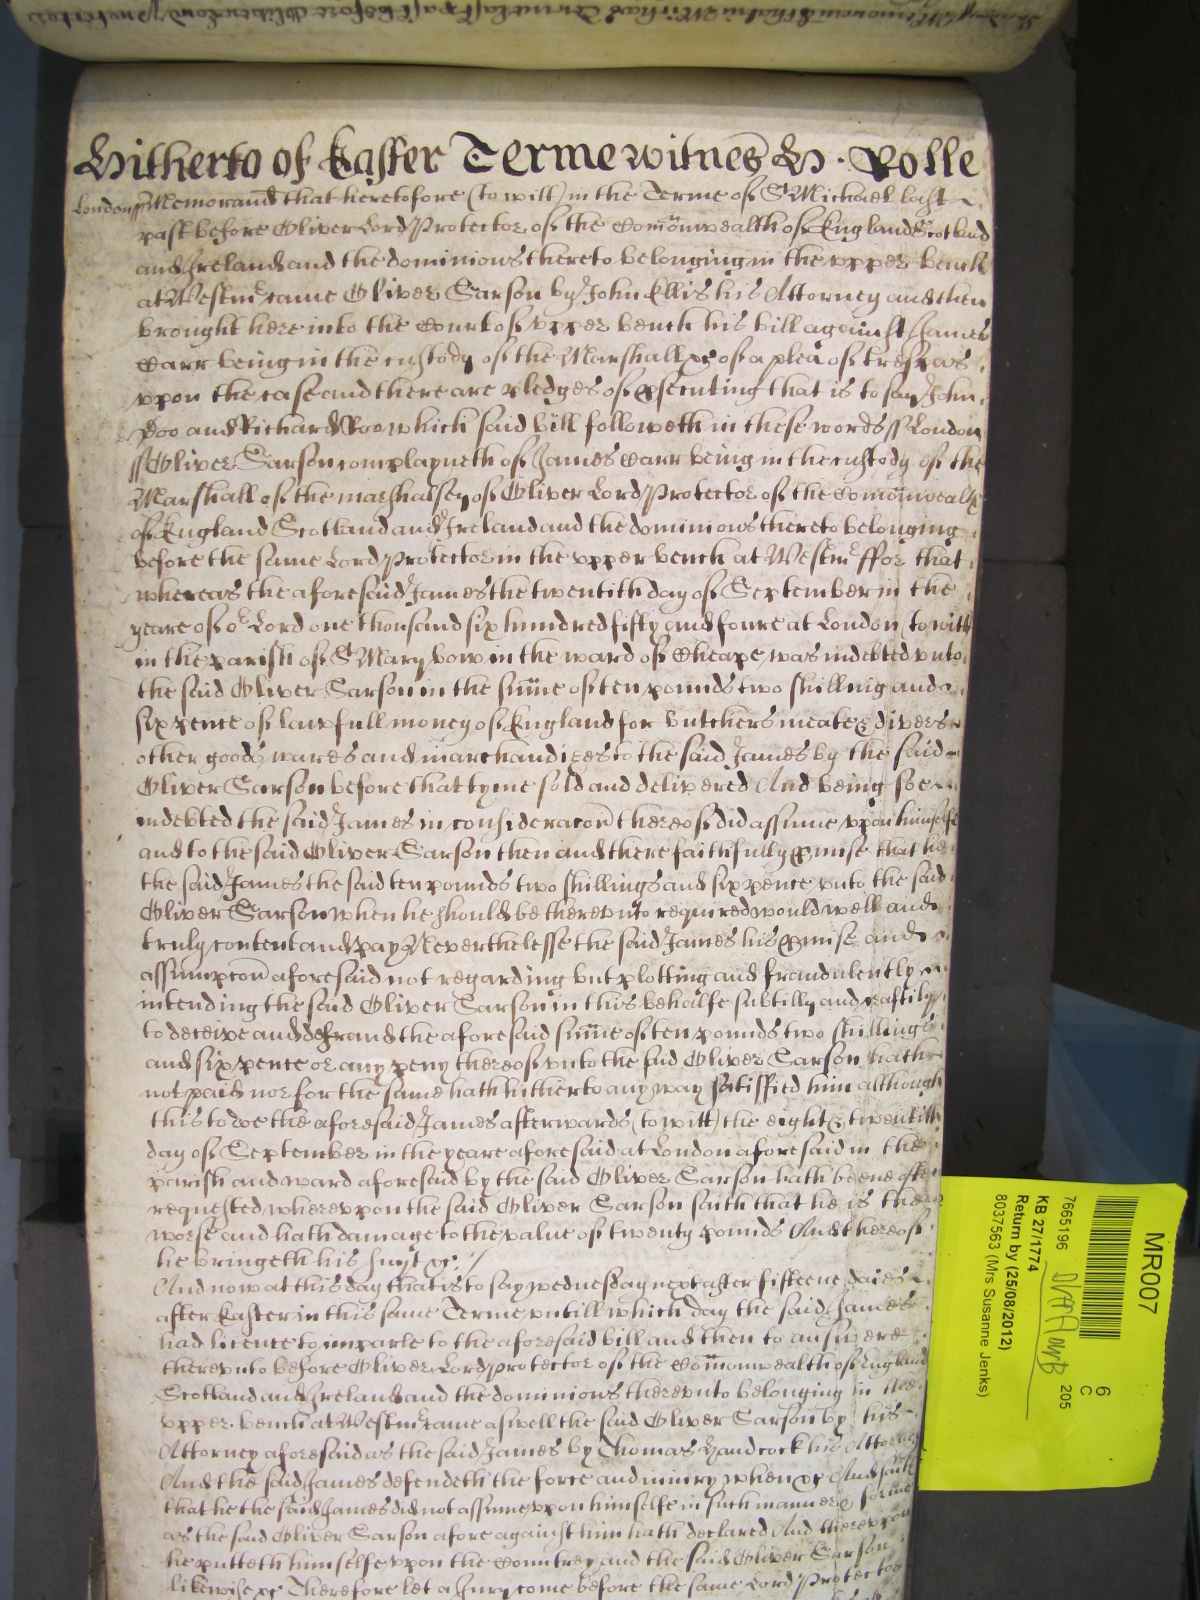 Hitherto of Easter Terme witnes H. Rolle
London ss Memorand that heretofore (to witt) in the Terme of St Michael last
past before Oliver Lord Protector of the Comonwealth of England Scotland
and Ireland and the dominions thereto belonging in the upper bench
at Westmr came Oliver Sarson by John Ellis his Attorney and then
brought here into the Court of upper bench his bill against James
Carr being in the custody of the Marshall &c of a plea of trespas
vpon the case and there are pledges of psecuting that is to say John
Doo and Richard Roo which said bill followeth in these words ss London
ss Oliver Sarson complayneth of James Carr being in the custody of the
Marshall of the marshalsey of Oliver Lord Protector of the Comonwealth
of England Scotland and Ireland and the dominions thereto belonging
before the same Lord Protector in the vpper bench at Westmr ffor that
whereas the aforesaid James the twentith day of September in the
yeare of or Lord one thousand six hundred fifty and foure at London (to witt
in the parish of St Mary bow in the ward of Cheape, was indebted vnto
the said Oliver Sarson in the sume of ten pounds two shilling and
six pence of lawfull money of England for butchers meate & divers
other goods wares and marchandizes to the said James by the said
Oliver Sarson before that tyme sold and delivered And being soe
indebted the said James in consideracon thereof did assume vpon himselfe
and to the said Oliver Sarson then and there faithfully pmise that he
the said James the said ten pounds two shillings and six pence vnto the said
Oliver Sarson when he should be therevnto required would well and
truly content and pay Neverthelesse the said James his pmise and
assumpcon aforesaid not regarding but plotting and fraudulently
intending the said Oliver Sarson in this behalfe subtilly and craftily
to deceive and defraud the aforesaid sume of ten pounds two shillings
and six pence or any peny thereof vnto the said Oliver Sarson hath
not paid nor for the same hath hitherto any way satisffied him although
this to doe the aforesaid James afterwards (to witt) the eight & twentith
day of September in the yeare aforesaid at London aforesaid in the
parish and ward aforesaid by the said Oliver Sarson hath beene often
requested wherevpon the said Oliver Sarson saith that he is the
worse and hath damage to the value of twenty pounds And thereof
he bringeth his suyt &c
And now at this day that is to say wednesday next after fifteene daies
after Easter in this same Terme vntill which day the said James
had licence to imparle to the aforesaid bill and then to answere
therevnto before Oliver Lord protector of the Comonwealth of England
Scotland and Ireland and the dominions therevnto belonging in the
vpper bench at Westmr came aswell the said Oliver Sarson by his
Attorney aforesaid as the said James by Thomas Handcock his Attorney
And the said James defendeth the force and iniury when &c And saith
that he the said James did not assume vpon himselfe in such manner & forme
as the said Oliver Sarson afore against him hath declared And therevpon
he putteth himselfe vpon the Countrey and the said Oliver Sarson
likewise &c Therefore let a Jury come before the same Lord Protector
MR007
6
C
205
7665196
KB 27/1774
Return by (25/08/2012)
8037563 (Mrs Susanne Jenks)